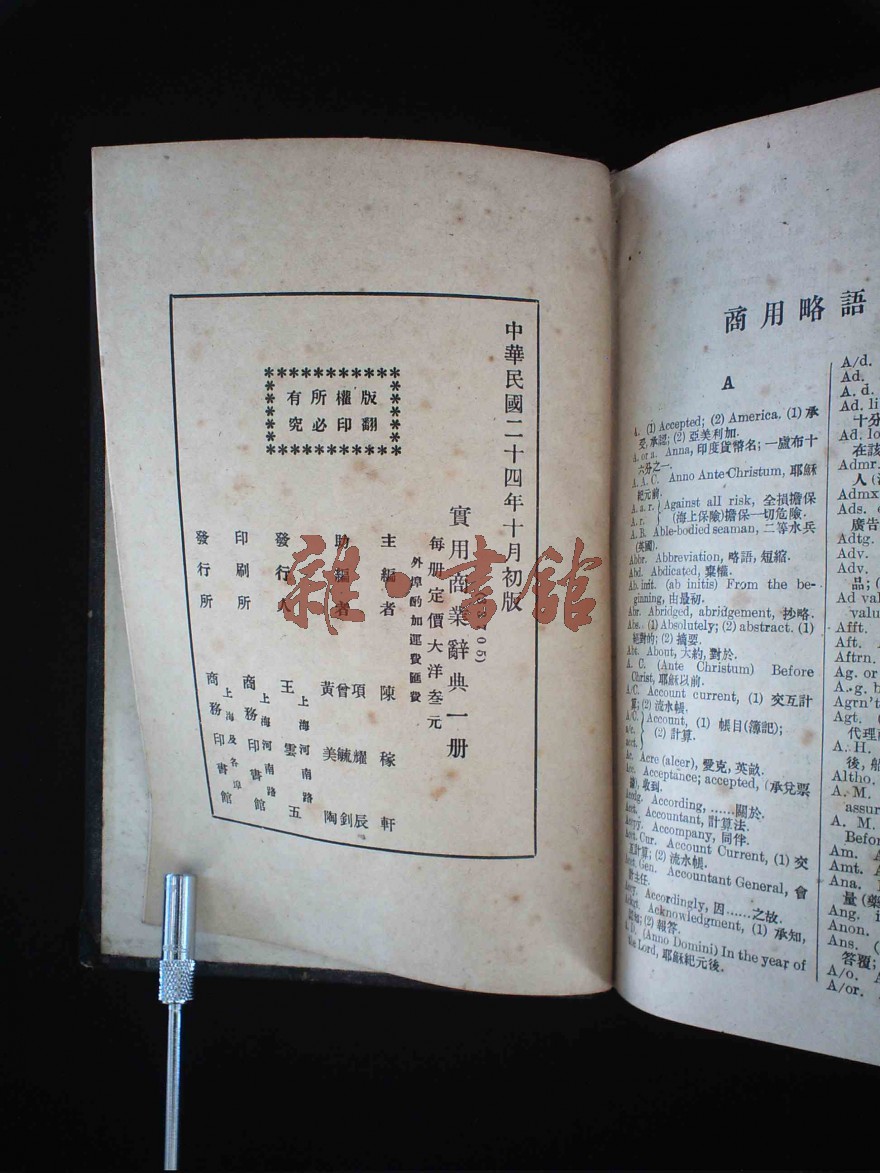 中華民國二十四年十月初版
實用商業辭典一册
每册定價大洋叁元
外埠酌加運費匯費
主編者 陳稼軒
助編者 項耀辰
曾毓釗
黃美陶
發行人 王雲五
上海河南路
印刷所 商務印書館
上海河南路
發行所 商務印書館
上海及各埠
版權所有
翻印必究
雜·書館
商用略語
A
A. (1) Accepted; (2) America, (1) 承
受, 承認; (2) 亞美利加.
A. or a. Anna, 印度貨幣名; 一盧布十
六分之一.
A. A. C. Anno Ante Christum, 耶穌
紀元前.
A. a. r. Against all risk, 全損擔保
A. r. (海上保險)擔保一切危險.
A. B. Able-bodied seaman, 二等水兵
(英國).
Abbr. Abbreviation, 略語, 短縮.
Abd. Abdicated, 棄權.
Ab. init. (ab initis) From the be-
ginning, 由最初.
Abr. Abridged, abridgement, 抄略.
Abs. (1) Absolutely; (2) abstract. (1)
絕對的; (2) 摘要.
Abt. About, 大約, 對於.
A. C. (Ante Christum) Before
Christ, 耶穌以前.
A/C. Account current, (1) 交互計
算; (2) 流水帳.
A/C. Account, (1) 帳目(簿記);
a/c. (2) 計算.
acct.
Ac. Acre (alcer), 愛克, 英畝.
Acc. Acceptance; accepted, (承兌票
據), 收到.
Accdg. According, ……關於.
Acct. Accountant, 計算法.
Accpy. Accompany, 同伴.
Acct. Cur. Account Current, (1) 交
互計算; (2) 流水帳.
Acct. Gen. Accountant General, 會
計主任.
Accy. Accordingly, 因……之故.
Ackgt. Acknowledgment, (1) 承知,
認知; (2) 報答.
A. D. (Anno Domini) In the year of
the Lord, 耶穌紀元後.
A/d.
Ad.
A. d.
Ad. li
十分
Ad. lo
在該
Admr.
人(
Admx
Ads.
廣告
Adtg.
Adv.
Adv.
品; (
Ad val
valu
Afft.
Aft.
Aftrn.
Ag. or
A. g. b
Agrn't
Agt. (
代理商
A. H.
後, 船
Altho.
A. M.
assur
A. M.
Befor
Am. A
Amt.
Ana.
量(藥
Ang. i
Anon.
Ans. (
答覆;
A/o.
A/or.